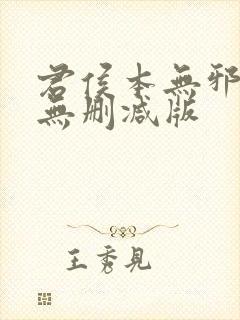 君侯本無邪
無删减版
王秀見